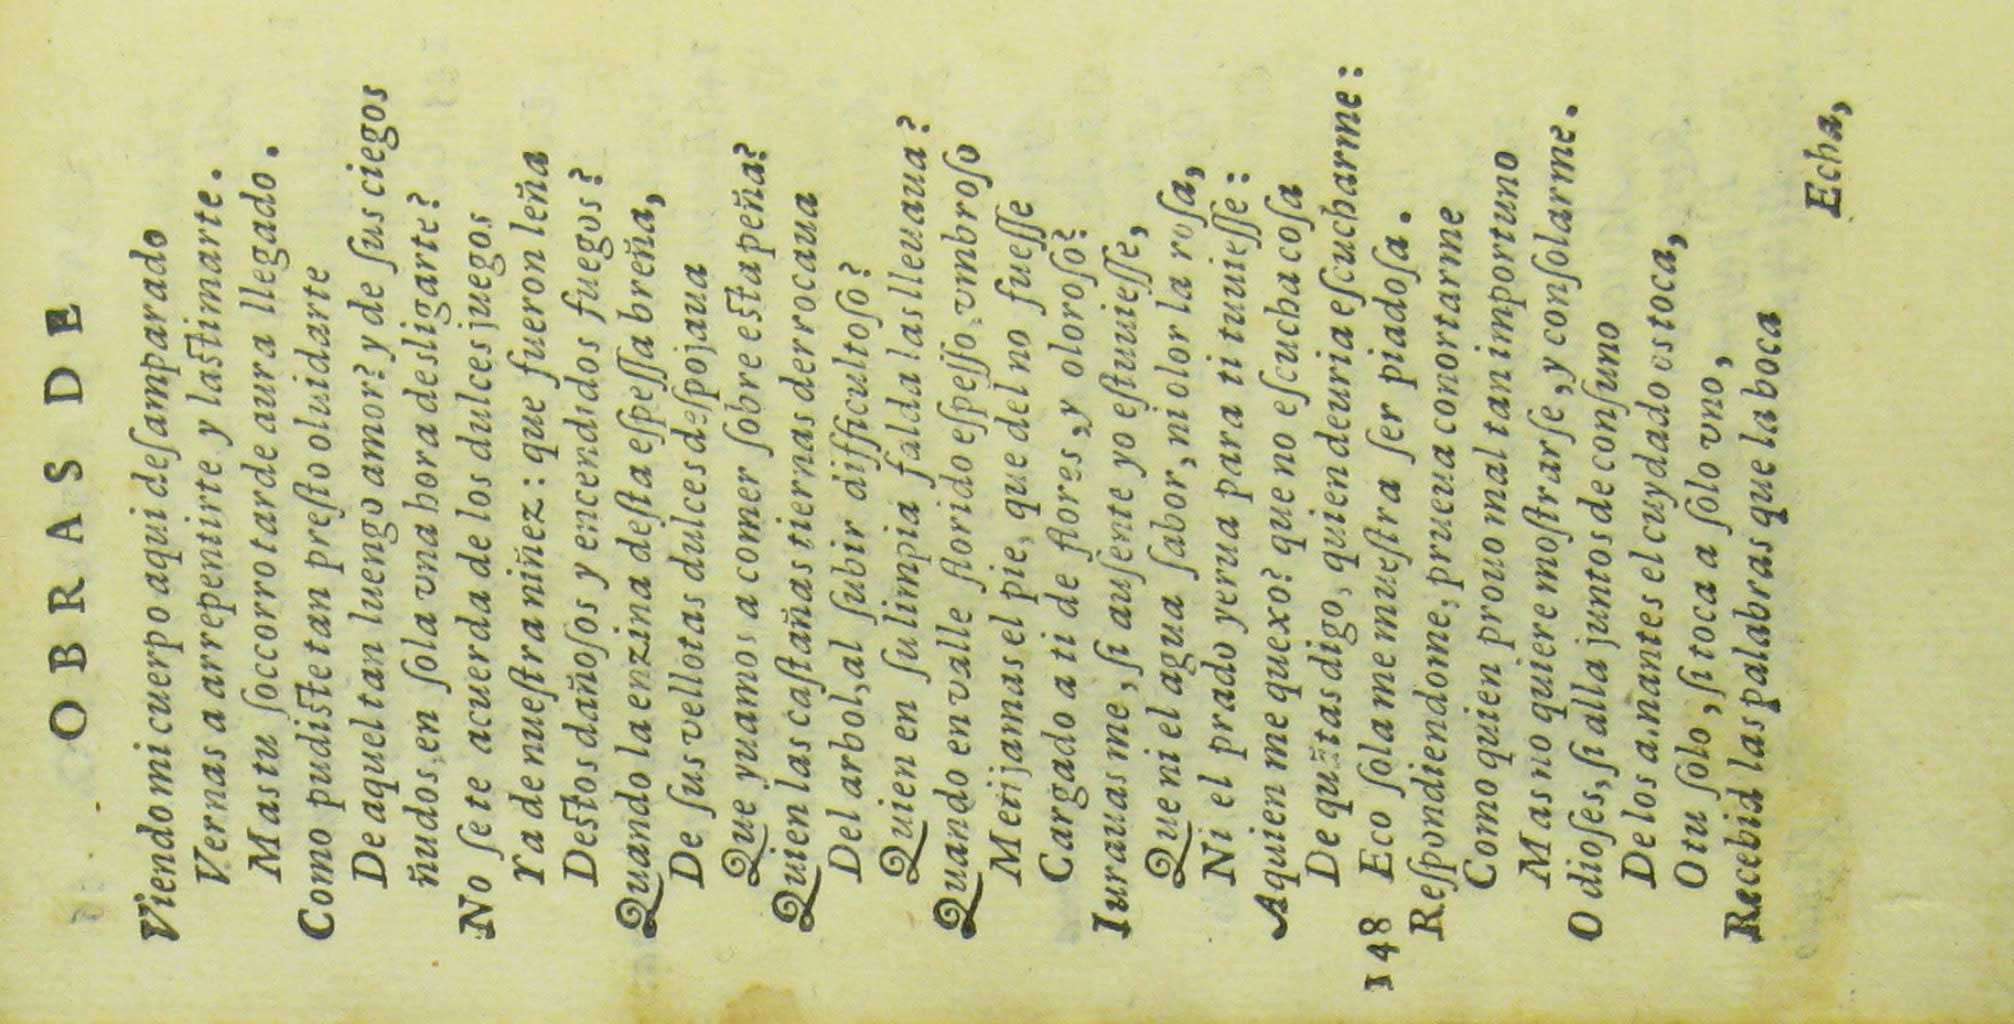 OBRAS DE
Viendo mi cuerpo aqui deſamparado
Vernas a arrepentirte y laſtimarte.
Mas tu ſoccorro tarde aura llegado.
Como pudiſte tan preſto oluidarte
De aquel tan luengo amor? y de ſus ciegos
ñudos, en ſola vna hora desligarte?
No ſe te acuerda de los dulces juegos
Ya de nueſtra niñez: que fueron leña
Deſtos dañoſos y encendidos fuegos?
Quando la enzina deſta eſpeſſa breña,
De ſus vellotas dulces deſpojaua
Que yuamos a comer ſobre eſta peña?
Quien las caſtañas tiernas derrocaua
Del arbol, al ſubir difficultoſo?
Quien en ſu limpia falda las lleuaua?
Quando en valle florido eſpeſſo, vmbroſo
Metijamas el pie, que del no fueſſe
Cargado a ti de flores, y oloroſo?
Iurauas me, ſi auſente yo eſtuuieſſe,
Que ni el agua ſabor, ni olor la roſa,
Ni el prado yerua para ti tuuieſſe:
A quien me quexo? que no eſcucha coſa
De quãtas digo, quien deuria eſcucharme:
148 Eco ſola me mueſtra ſer piadoſa.
Reſpondiendome, prueua conortarme
Como quien prouo mal tan importuno
Mas no quiere moſtrarſe, y conſolarme.
O dioſes, ſi alla juntos de conſuno
De los amantes el cuydado os toca,
O tu ſolo, ſi toca a ſolo vno,
Recebid las palabras que la boca
Echa,